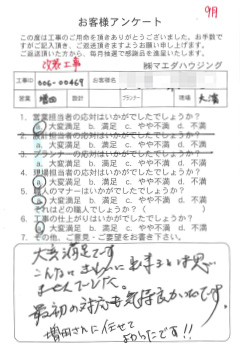 9月
お客様アンケート
この度は工事のご用命を頂きありがとうございました。お手数で
すがご記入頂き、ご返送頂きますようお願い申し上げます。
ご返送頂いた方から、毎月抽選で感謝品を進呈致します。
改装工事
㈱マエダハウジング
工事ID 006-00469 お客様名
営業 増田 設計 プランナー 現場 大濱
1. 営業担当者の応対はいかがでしたでしょうか?
a. 大変満足 b. 満足 c. やや不満 d. 不満
2. 設計担当者の応対はいかがでしたでしょうか?
a. 大変満足 b. 満足 c. やや不満 d. 不満
3. プランナーの応対はいかがでしたでしょうか?
a. 大変満足 b. 満足 c. やや不満 d. 不満
a. 大変満足 b. 満足 c. やや不満 d. 不満
5. 職人のマナーはいかがでしたでしょうか?
a. 大変満足 b. 満足 c. やや不満 d. 不満
それはどの職人でしょうか?( )
6. 工事の仕上がりはいかがでしたでしょうか?
a. 大変満足 b. 満足 c. やや不満 d. 不満
7. その他、ご意見・ご要望をお書き下さい。
大変満足です
こんなにきれいに出来るとは思い
ませんでした。
最初の対応も気持良かったです。
増田さんに任せて
よかったです!!